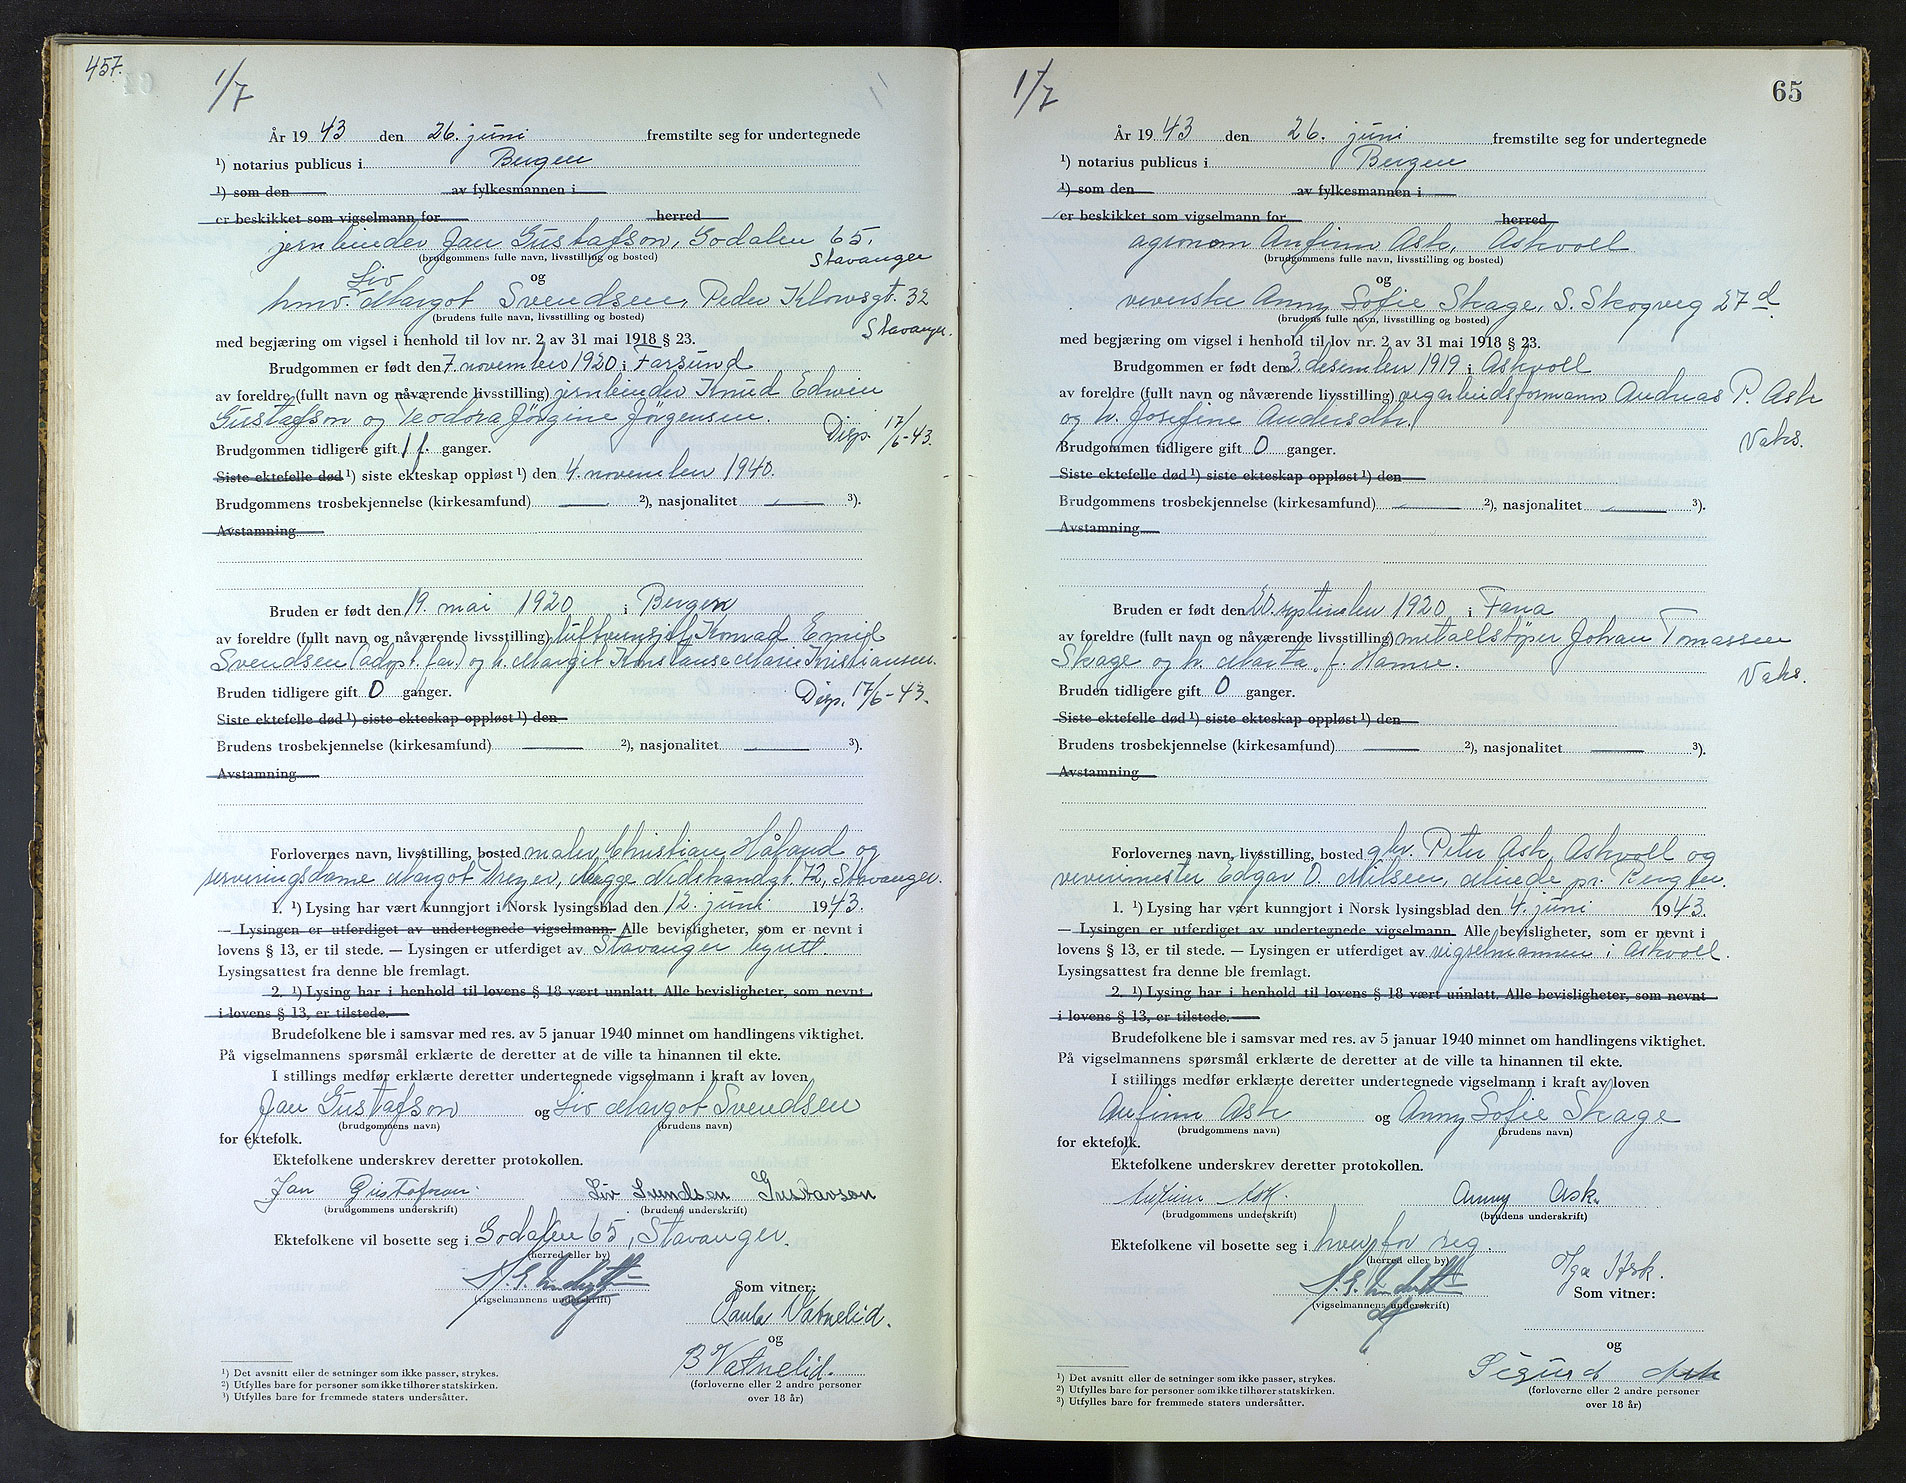 457.
1/7
År 1943 den 26. juni fremstilte seg for undertegnede
¹) notarius publicus i Bergen
¹) som den av fylkesmannen i
er beskikket som vigselmann for herred
jernbinder Jan Gustafson, Godalen 65.
(brudgommens fulle navn, livsstilling og bosted)
Stavanger
og
Liv
hmv. Margot Svendsen, Peder Klowsgt. 32
(brudens fulle navn, livsstilling og bosted)
Stavanger.
med begjæring om vigsel i henhold til lov nr. 2 av 31 mai 1918 § 23.
Brudgommen er født den 7. november 1920 i Farsund
av foreldre (fullt navn og nåværende livsstilling) jernbinder Knud Edwin
Gustafson og Teodora Jörgine Jörgensen.
Disp. 17/6-43.
Brudgommen tidligere gift 1 f. ganger.
Siste ektefelle død ¹) siste ekteskap oppløst ¹) den 4. november 1940.
Brudgommens trosbekjennelse (kirkesamfund) ²), nasjonalitet ³).
Avstamning
Bruden er født den 19. mai 1920 i Bergen
av foreldre (fullt navn og nåværende livsstilling) Konrad Emil
Svendsen (adopt. far) og h. Margit Konstanse Marie Kristiansen.
Bruden tidligere gift 0 ganger.
Disp. 17/6-43.
Siste ektefelle død ¹) siste ekteskap oppløst ¹) den
Brudens trosbekjennelse (kirkesamfund) ²), nasjonalitet ³).
Avstamning
Forlovernes navn, livsstilling, bosted maler Christian Håland og
serveringsdame Margot Meyer, begge Nedstrandgt. 72, Stavanger.
1. ¹) Lysing har vært kunngjort i Norsk lysingsblad den 12. juni 1943.
— Lysingen er utferdiget av undertegnede vigselmann. Alle bevisligheter, som er nevnt i
lovens § 13, er til stede. — Lysingen er utferdiget av Stavanger byrett.
Lysingsattest fra denne ble fremlagt.
2. ¹) Lysing har i henhold til lovens § 18 vært unnlatt. Alle bevisligheter, som nevnt
i lovens § 13, er tilstede.
Brudefolkene ble i samsvar med res. av 5 januar 1940 minnet om handlingens viktighet.
På vigselmannens spørsmål erklærte de deretter at de ville ta hinannen til ekte.
I stillings medfør erklærte deretter undertegnede vigselmann i kraft av loven
Jan Gustafson og Liv Margot Svendsen
(brudgommens navn) (brudens navn)
for ektefolk.
Ektefolkene underskrev deretter protokollen.
Jan Gustafson. Liv Svendsen Gustavson
(brudgommens underskrift) (brudens underskrift)
Ektefolkene vil bosette seg i Godalen 65, Stavanger.
(herred eller by)
(vigselmannens underskrift)
Som vitner:
Paula Vatnelid.
og
B Vatnelid.
(forloverne eller 2 andre personer
over 18 år)
¹) Det avsnitt eller de setninger som ikke passer, strykes.
²) Utfylles bare for personer som ikke tilhører statskirken.
³) Utfylles bare for fremmede staters undersåtter.
1/7
65
År 1943 den 26. juni fremstilte seg for undertegnede
¹) notarius publicus i Bergen
¹) som den av fylkesmannen i
er beskikket som vigselmann for herred
agronom Anfinn Ask, Askvoll
(brudgommens fulle navn, livsstilling og bosted)
og
veverske Anny Sofie Skage, S. Skogveg 27 d
(brudens fulle navn, livsstilling og bosted)
med begjæring om vigsel i henhold til lov nr. 2 av 31 mai 1918 § 23.
Brudgommen er født den 3. desember 1919 i Askvoll
av foreldre (fullt navn og nåværende livsstilling) vegarbeidsformann Andreas P. Ask
og h. Josefine Andersdtr.
Vaks.
Brudgommen tidligere gift 0 ganger.
Siste ektefelle død ¹) siste ekteskap oppløst ¹) den
Brudgommens trosbekjennelse (kirkesamfund) ²), nasjonalitet ³).
Avstamning
Bruden er født den 20. september 1920 i Fana
av foreldre (fullt navn og nåværende livsstilling) metallstøper Johan Tomassen
Skage og h. Marta f. Hamre.
Vaks.
Bruden tidligere gift 0 ganger.
Siste ektefelle død ¹) siste ekteskap oppløst ¹) den
Brudens trosbekjennelse (kirkesamfund) ²), nasjonalitet ³).
Avstamning
Forlovernes navn, livsstilling, bosted gbr. Peter Ask, Askvoll og
vevermester Edgar O. Nilsen, Minde pr. Bergen.
1. ¹) Lysing har vært kunngjort i Norsk lysingsblad den 4. juni 1943.
— Lysingen er utferdiget av undertegnede vigselmann. Alle bevisligheter, som er nevnt i
lovens § 13, er til stede. — Lysingen er utferdiget av vigselmannen i Askvoll.
Lysingsattest fra denne ble fremlagt.
2. ¹) Lysing har i henhold til lovens § 18 vært unnlatt. Alle bevisligheter, som nevnt
i lovens § 13, er tilstede.
Brudefolkene ble i samsvar med res. av 5 januar 1940 minnet om handlingens viktighet.
På vigselmannens spørsmål erklærte de deretter at de ville ta hinannen til ekte.
I stillings medfør erklærte deretter undertegnede vigselmann i kraft av loven
Anfinn Ask og Anny Sofie Skage
(brudgommens navn) (brudens navn)
for ektefolk.
Ektefolkene underskrev deretter protokollen.
Anfinn Ask. Anny Ask.
(brudgommens underskrift) (brudens underskrift)
Ektefolkene vil bosette seg i hver for seg.
(herred eller by)
(vigselmannens underskrift)
Ask.
Som vitner:
og
Sigurd Ask
(forloverne eller 2 andre personer
over 18 år)
¹) Det avsnitt eller de setninger som ikke passer, strykes.
²) Utfylles bare for personer som ikke tilhører statskirken.
³) Utfylles bare for fremmede staters undersåtter.